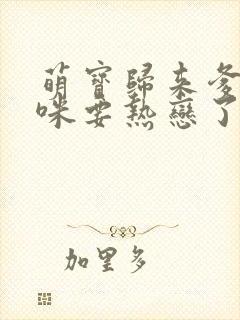 萌寶歸来爹
咪要熱戀了
加里多